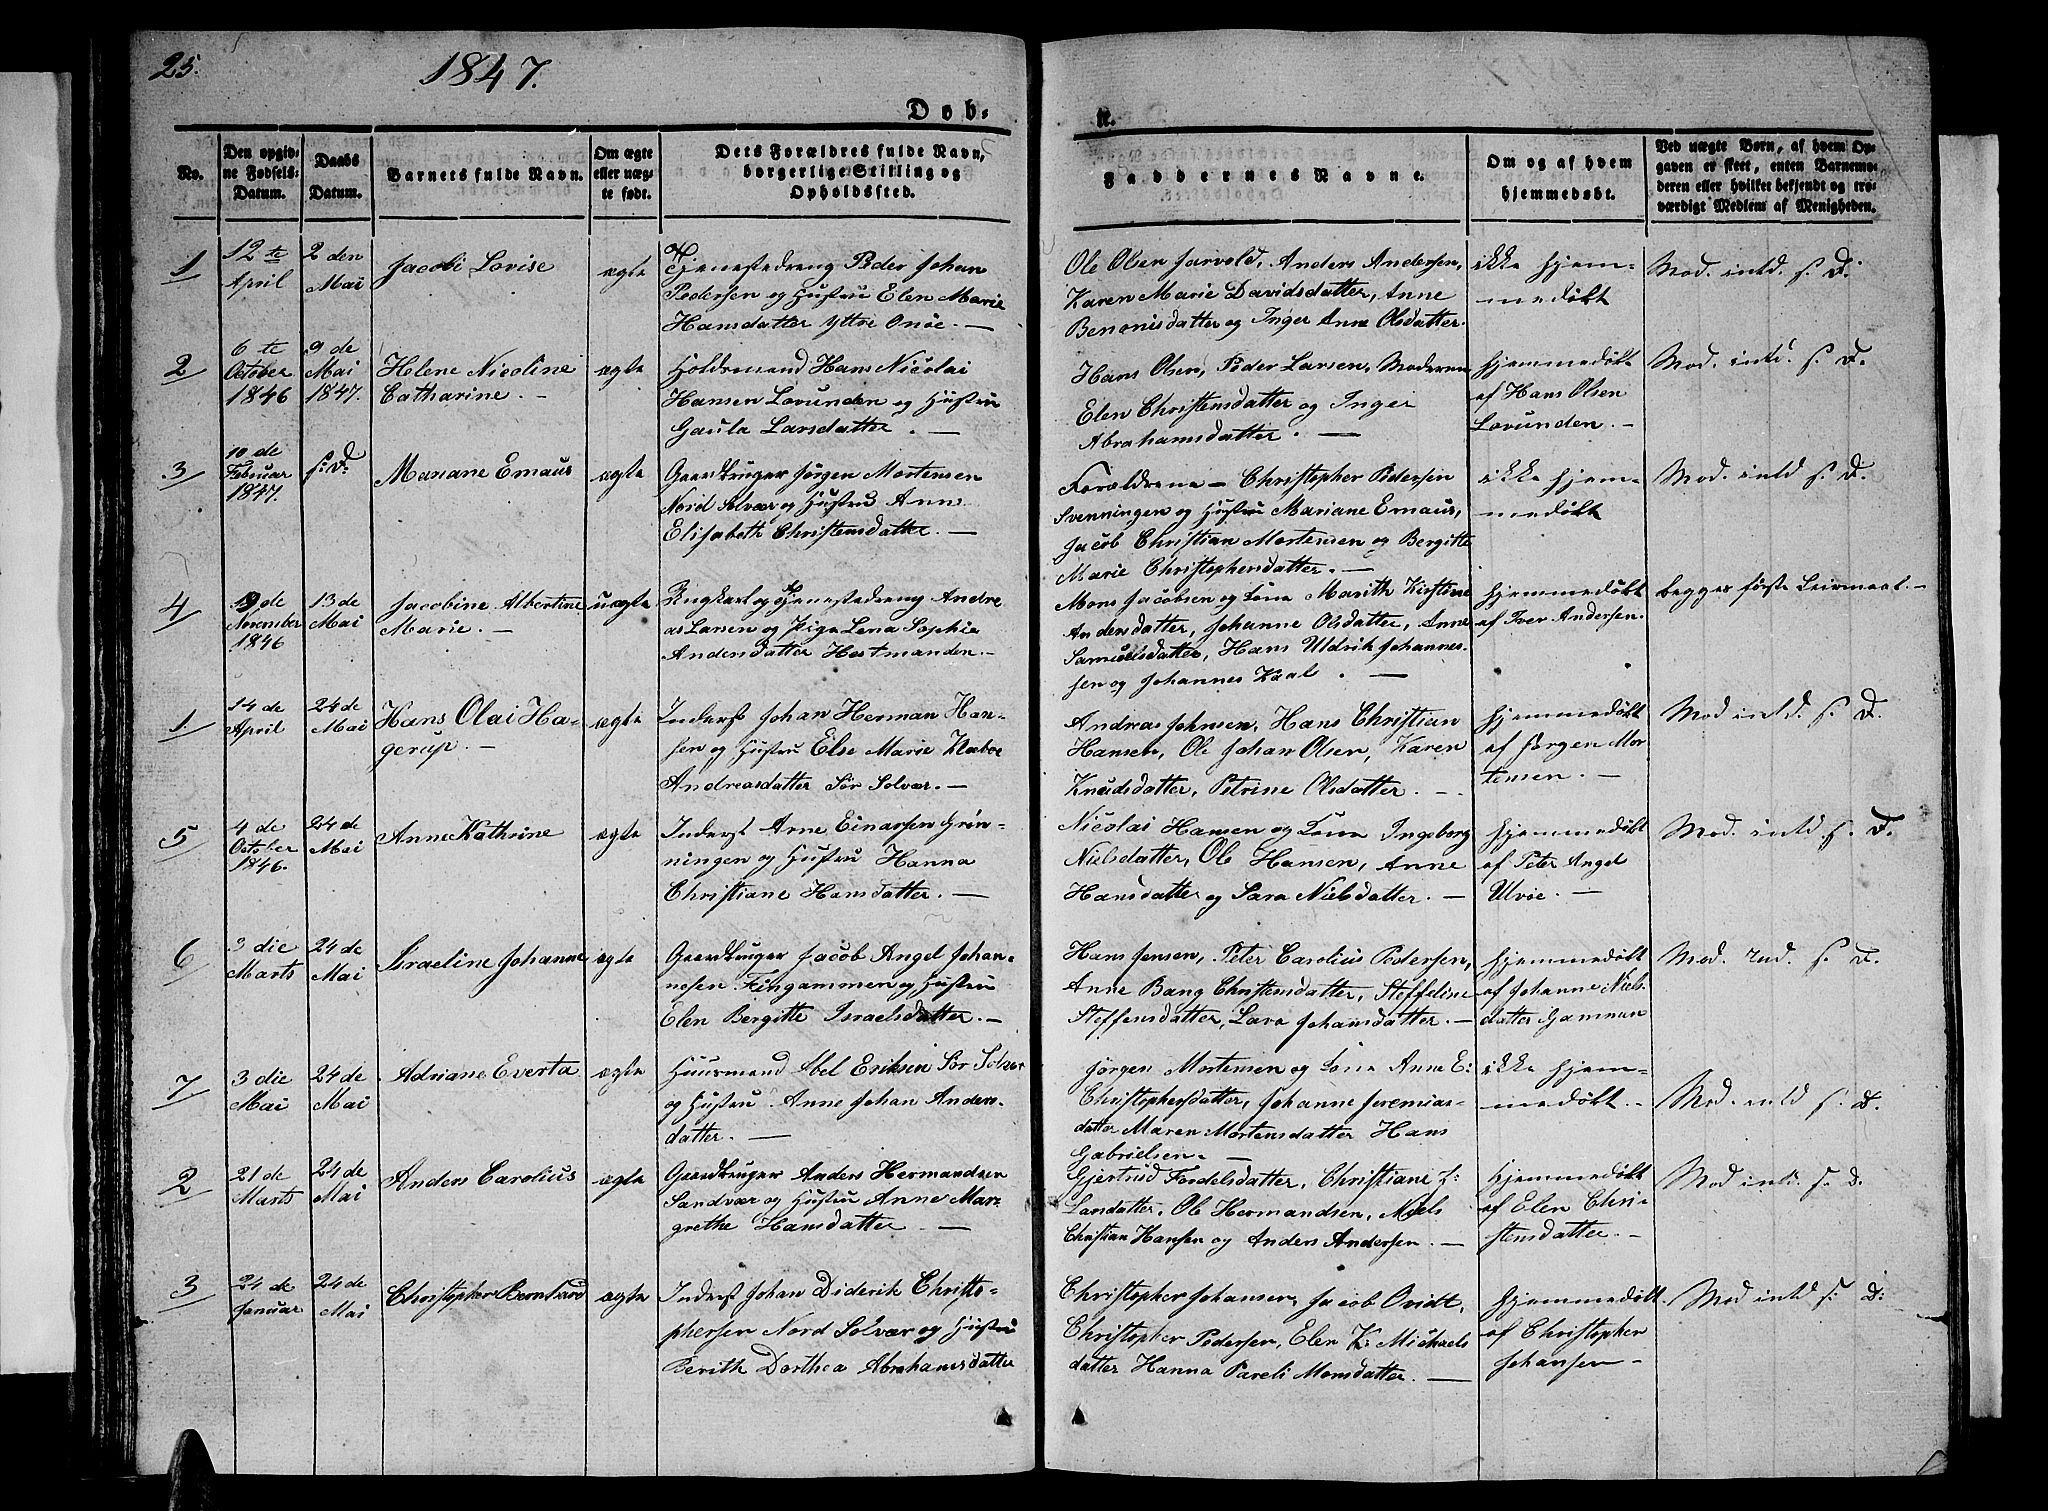 25.
1847.
Dob-
n.
No.
Den opgiv-
ne Fødsels-
Datum.
Daabs
Datum.
Barnets fulde Navn.
Om ægte
eller uæg-
te født.
Dets Forældres fulde Navn,
borgerlige Stilling og
Opholdssted.
Faddernes Navne.
Om og af hvem
hjemmedøbt.
Ved uægte Børn, af hvem Op-
gaven er skeet, enten Barnemo-
deren eller hvilket bekjendt og tro-
værdigt Medlem af Menigheden.
1
12te
April
2 den
Mai
Jacobi Lovise
ægte
Tjenestedreng Peder Johan
Pedersen og Hustru Elen Marie
Hansdatter Yttre Onöe. —
Ole Olsen Jarvold, Anders Andersen,
Karen Marie Davidsdatter, Anne
Benonisdatter og Inger Anne Olsdatter.
ikke hjem-
medøbt
Mod. intd. s. D.
2
6 te
October
1846
9 de
Mai
1847.
Helene Nicoline
Catharine. —
ægte
Holdsmand Hans Nicolai
Hansen Lovunden og Hustru
Gaula Larsdatter. —
Hans Olsen, Peder Larsen, Moderen
Elen Christensdatter og Inger
Abrahamsdatter. —
hjemmedøbt
af Hans Olsen
Lovunden. —
Mod. intd. s. D.
3
10 de
Februar
1847.
s: D:
Mariane Emaus
ægte
Gaardbruger Jørgen Mortensen
Nord Solvær og Hustru Anne
Elisabeth Christensdatter. —
Forældrene — Christopher Pedersen
Svenningen og Hustru Mariane Emaus,
Jacob Christian Mortensen og Bergitte
Marie Christophersdatter. —
ikke hjem-
medøbt
Mod. intd s. D.
4
19 de
November
1846
13 de
Mai
Jacobine Albertine
Marie. —
uægte
Ungkarl og Tjenestedreng Andre
as Larsen og Pige Lena Sophie
Andersdatter Hestmanden. —
Mons Jacobsen og Kone Marith Kirstine
Andersdatter, Johanne Olsdatter, Anne
Samuelsdatter, Hans Uldrik Johannes-
sen og Johannes Kaal. —
hjemmedøbt
af Iver Andersen.
begges første Leirmaal. —
1
14 de
April
24 de
Mai
Hans Olai Ha-
gerup. —
ægte
Inderst Johan Herman Han-
sen og Hustru Else Marie Klæboe
Andreasdatter Sör Solvær. —
Andreas Johnsen, Hans Christian
Hansen, Ole Johan Olsen, Karen
Knudsdatter, Petrine Olsdatter. —
hjemmedøbt
af Jørgen Mor
tensen. —
Mod intd. s. D.
5
4 de
October
1846.
24 de
Mai
Anne Kathrine
ægte
Inderst Arne Einarsen Grön-
ningen og Hustru Hanna
Christiane Hansdatter. —
Nicolai Hansen og Kone Ingeborg
Nielsdatter, Ole Hansen, Anne
Hansdatter og Sara Nielsdatter. —
hjemmedøbt
af Peter Angel
Ulvöe. —
Mod. intd s. D.
6
3 die
Marts
24 de
Mai
Israeline Johanne
ægte
Gaardbruger Jacob Angel Johan-
nesen Fingammen og Hustru
Elen Bergitte Israelsdatter. —
Hans Jensen, Peter Carolius Pedersen,
Anne Bang Christensdatter, Steffeline
Steffensdatter, Lava Johansdatter. —
hjemmedøbt
af Johanne Niels
datter Gammen
Mod. ind. s. D.
7
3 die
Mai
24 de
Mai
Adriane Everta
ægte
Huusmand Abel Eriksen Sör Solvær
og Hustru Anne Johan Anders-
datter. —
Jørgen Mortensen og Kone Anne E:
Christophersdatter, Johanne Jeremias-
datter Maren Mortensdatter Hans
Gabrielsen. —
ikke hjem-
medøbt. —
Mod. intd s. D.
2
21 de
Marts
24 de
Mai
Anders Carolius
ægte
Gaardbruger Anders Hermandsen
Sandvær og Hustru Anne Mar-
grethe Hansdatter —
Gjertrud Fordelsdatter, Christiane J:
Larsdatter, Ole Hermandsen, Niels
Christian Hansen og Anders Andersen. —
hjemmedøbt
af Elen Chri-
stensdatter. —
Mod intd. s. D.
3
24 de
Januar
24 de
Mai
Christopher Berntsard
ægte
Inderst Johan Diderik Christo-
phersen Nord Solvær og Hustru
Berith Dorthea Abrahamsdatter
Christopher Johansen, Jacob Ovidt,
Christopher Pedersen, Elen K: Michaels
datter Hanna Pareli Monsdatter. —
hjemmedøbt.
af Christopher
Johansen —
Mod intd s: D: